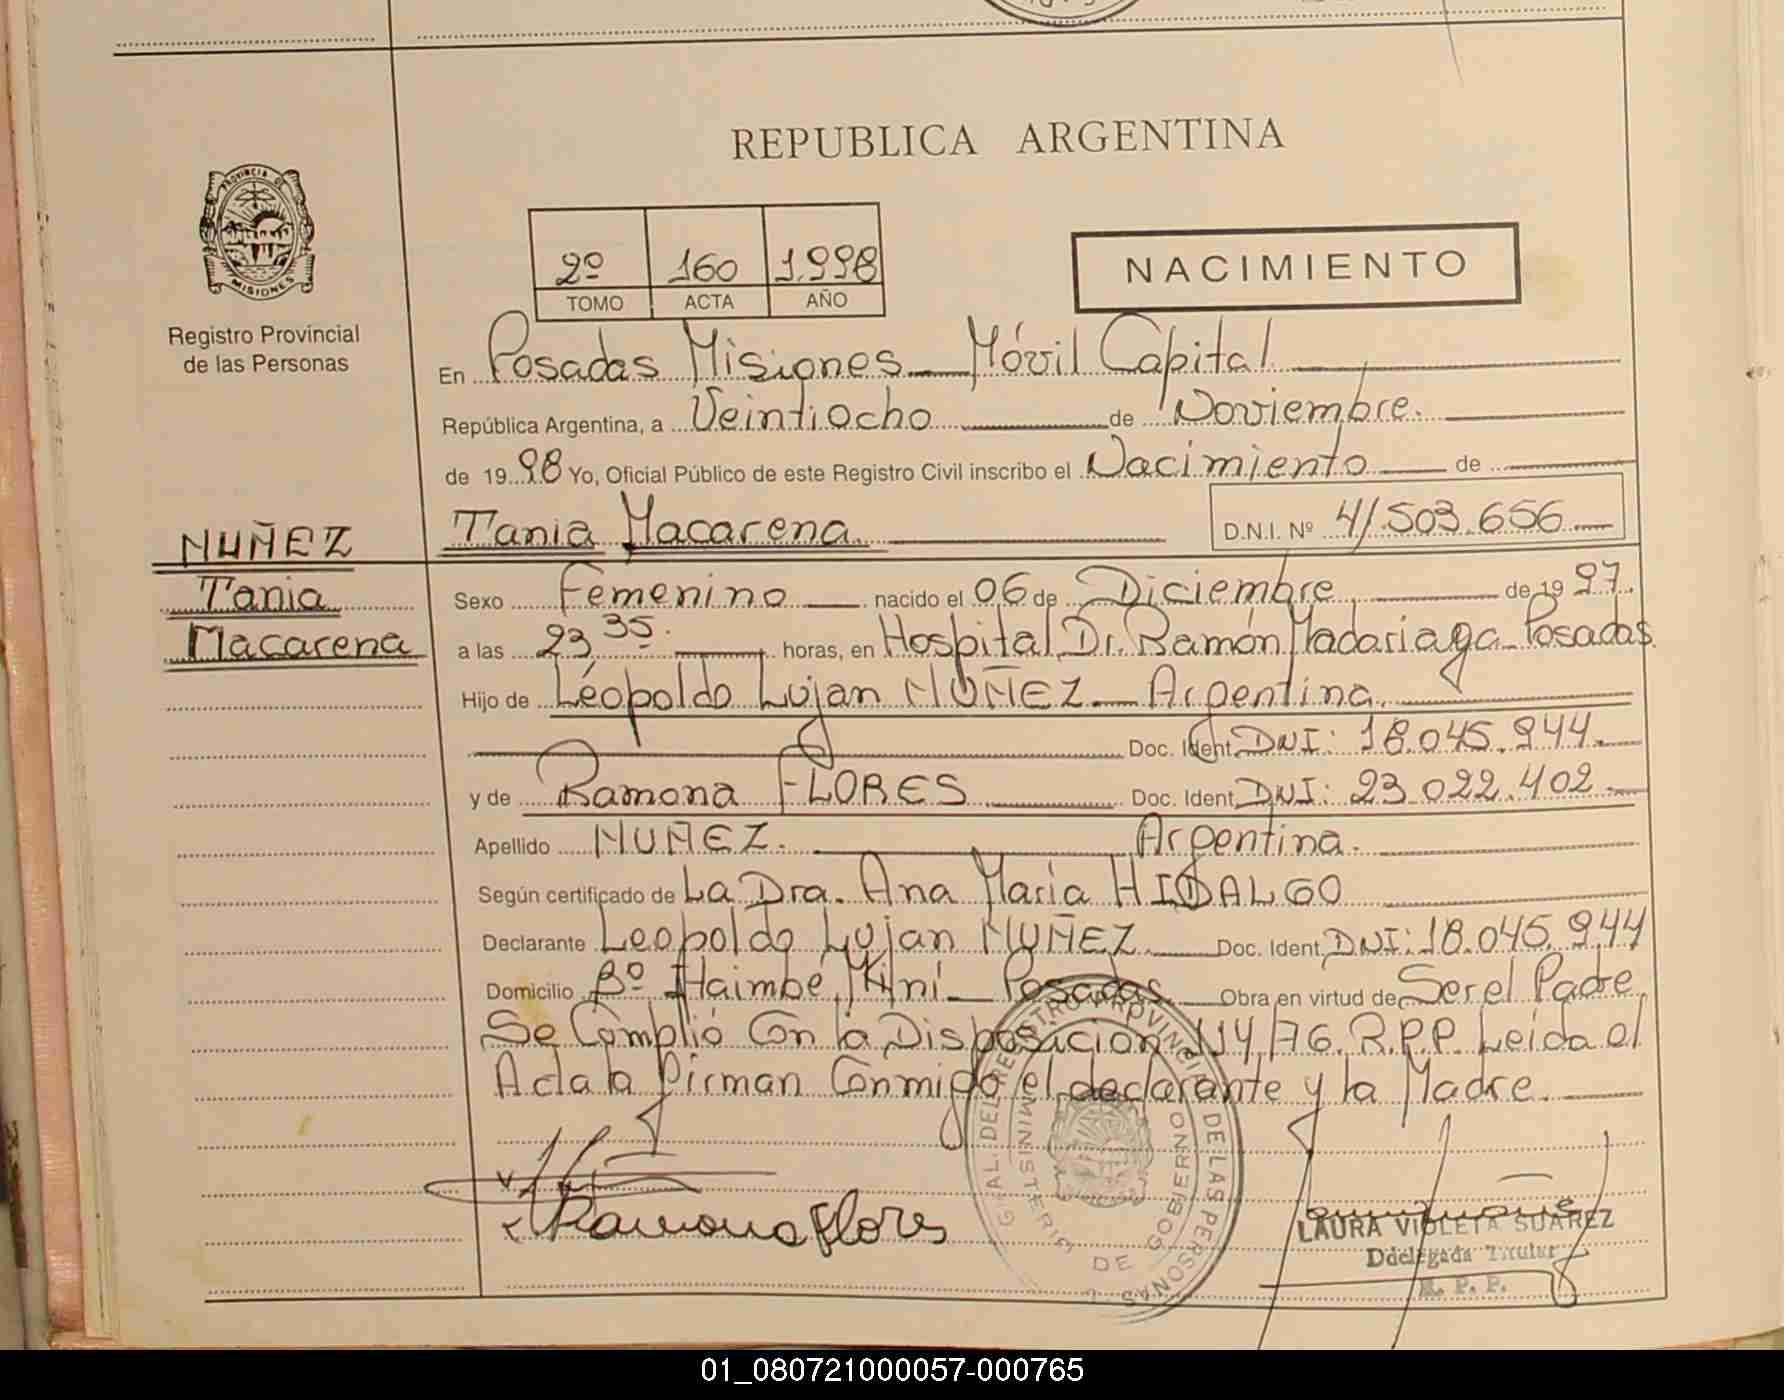 REPUBLICA ARGENTINA
PROVINCIA DE
MISIONES
Registro Provincial
de las Personas
2º 160 1.998
TOMO ACTA AÑO
NACIMIENTO
En Posadas Misiones Móvil Capital
República Argentina, a Veintiocho de Noviembre.
de 19 98 Yo, Oficial Público de este Registro Civil inscribo el Nacimiento de
NUÑEZ
Tania Macarena
Tania Macarena D.N.I. Nº 41.503.656
Sexo Femenino nacido el 06 de Diciembre de 19 97.
a las 23 35. horas, en Hospital Dr. Ramón Madariaga Posadas.
Hijo de Leopoldo Lujan NUÑEZ Argentina.
Doc. Ident. DNI: 18.045.944.
y de Ramona FLORES Doc. Ident. DNI: 23.022.402
Apellido NUÑEZ. Argentina.
Según certificado de La Dra. Ana Maria HIDALGO
Declarante Leopoldo Lujan NUÑEZ. Doc. Ident. DNI: 18.045.944
Domicilio Bº Itaimbe Miní Posadas. Obra en virtud de Ser el Padre.
Se Complió Con la Disposición 114/76. R.P.P. Leida el
Acta la Firman Conmigo el declarante y la Madre.
Ramona Flores
GRAL. DEL REGISTRO PROVINCIAL DE LAS PERSONAS
MINISTERIO DE GOBIERNO
LAURA VIOLETA SUAREZ
Delegada Titular
R. P. P.
01_080721000057-000765